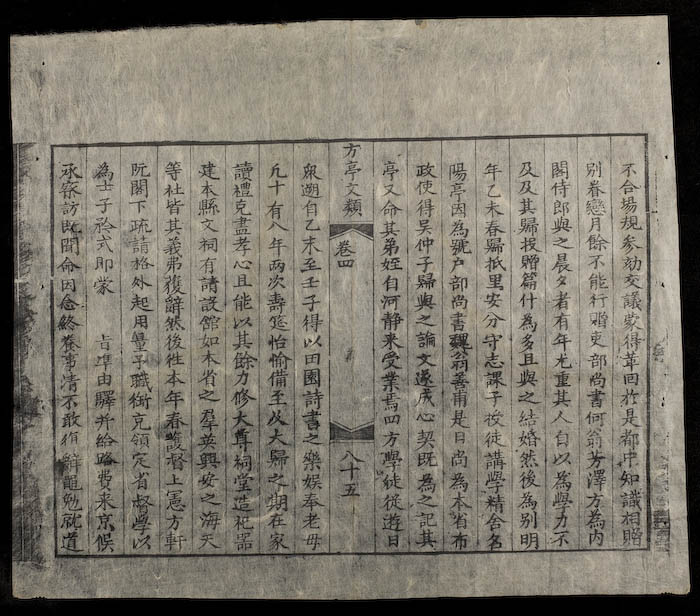 不合場規參劾交議蒙得革回於是都中知識相贈
別眷戀月餘不能行贈吏部尚書何翁芳澤方為內
閣侍郎與之晨夕者有年尤重其人自以為學力不
及及其歸投贈篇什為多且與之結婚然後為別明
年乙未春歸抵里安分守志課子授徒講學精舍名
陽亭因為號户部尚書魏翁善甫是日尚為本省布
政使得吴仲子歸與之論文遂成心契既為之記其
亭又命其弟姪自河静來受業焉四方學徒從遊日
方亭文類 卷四 八十五
眾遡自乙未至壬子得以田園詩書之樂娱奉老母
九十有八年兩次壽筵怡愉備至及大歸之期在家
讀禮克盡孝心且能以其餘力修大尊祠堂造祀器
建本縣文祠有請設館如本省之羣英興安之海天
等社皆其義弗獲辭然後徃本年春護督上憲方軒
阮閣下疏請格外起用量予職銜克領定省督學以
為士子矜式即蒙 肯凖由驛并給路費来京候
承察訪既聞命因念終養事清不敢復辭黽勉就道